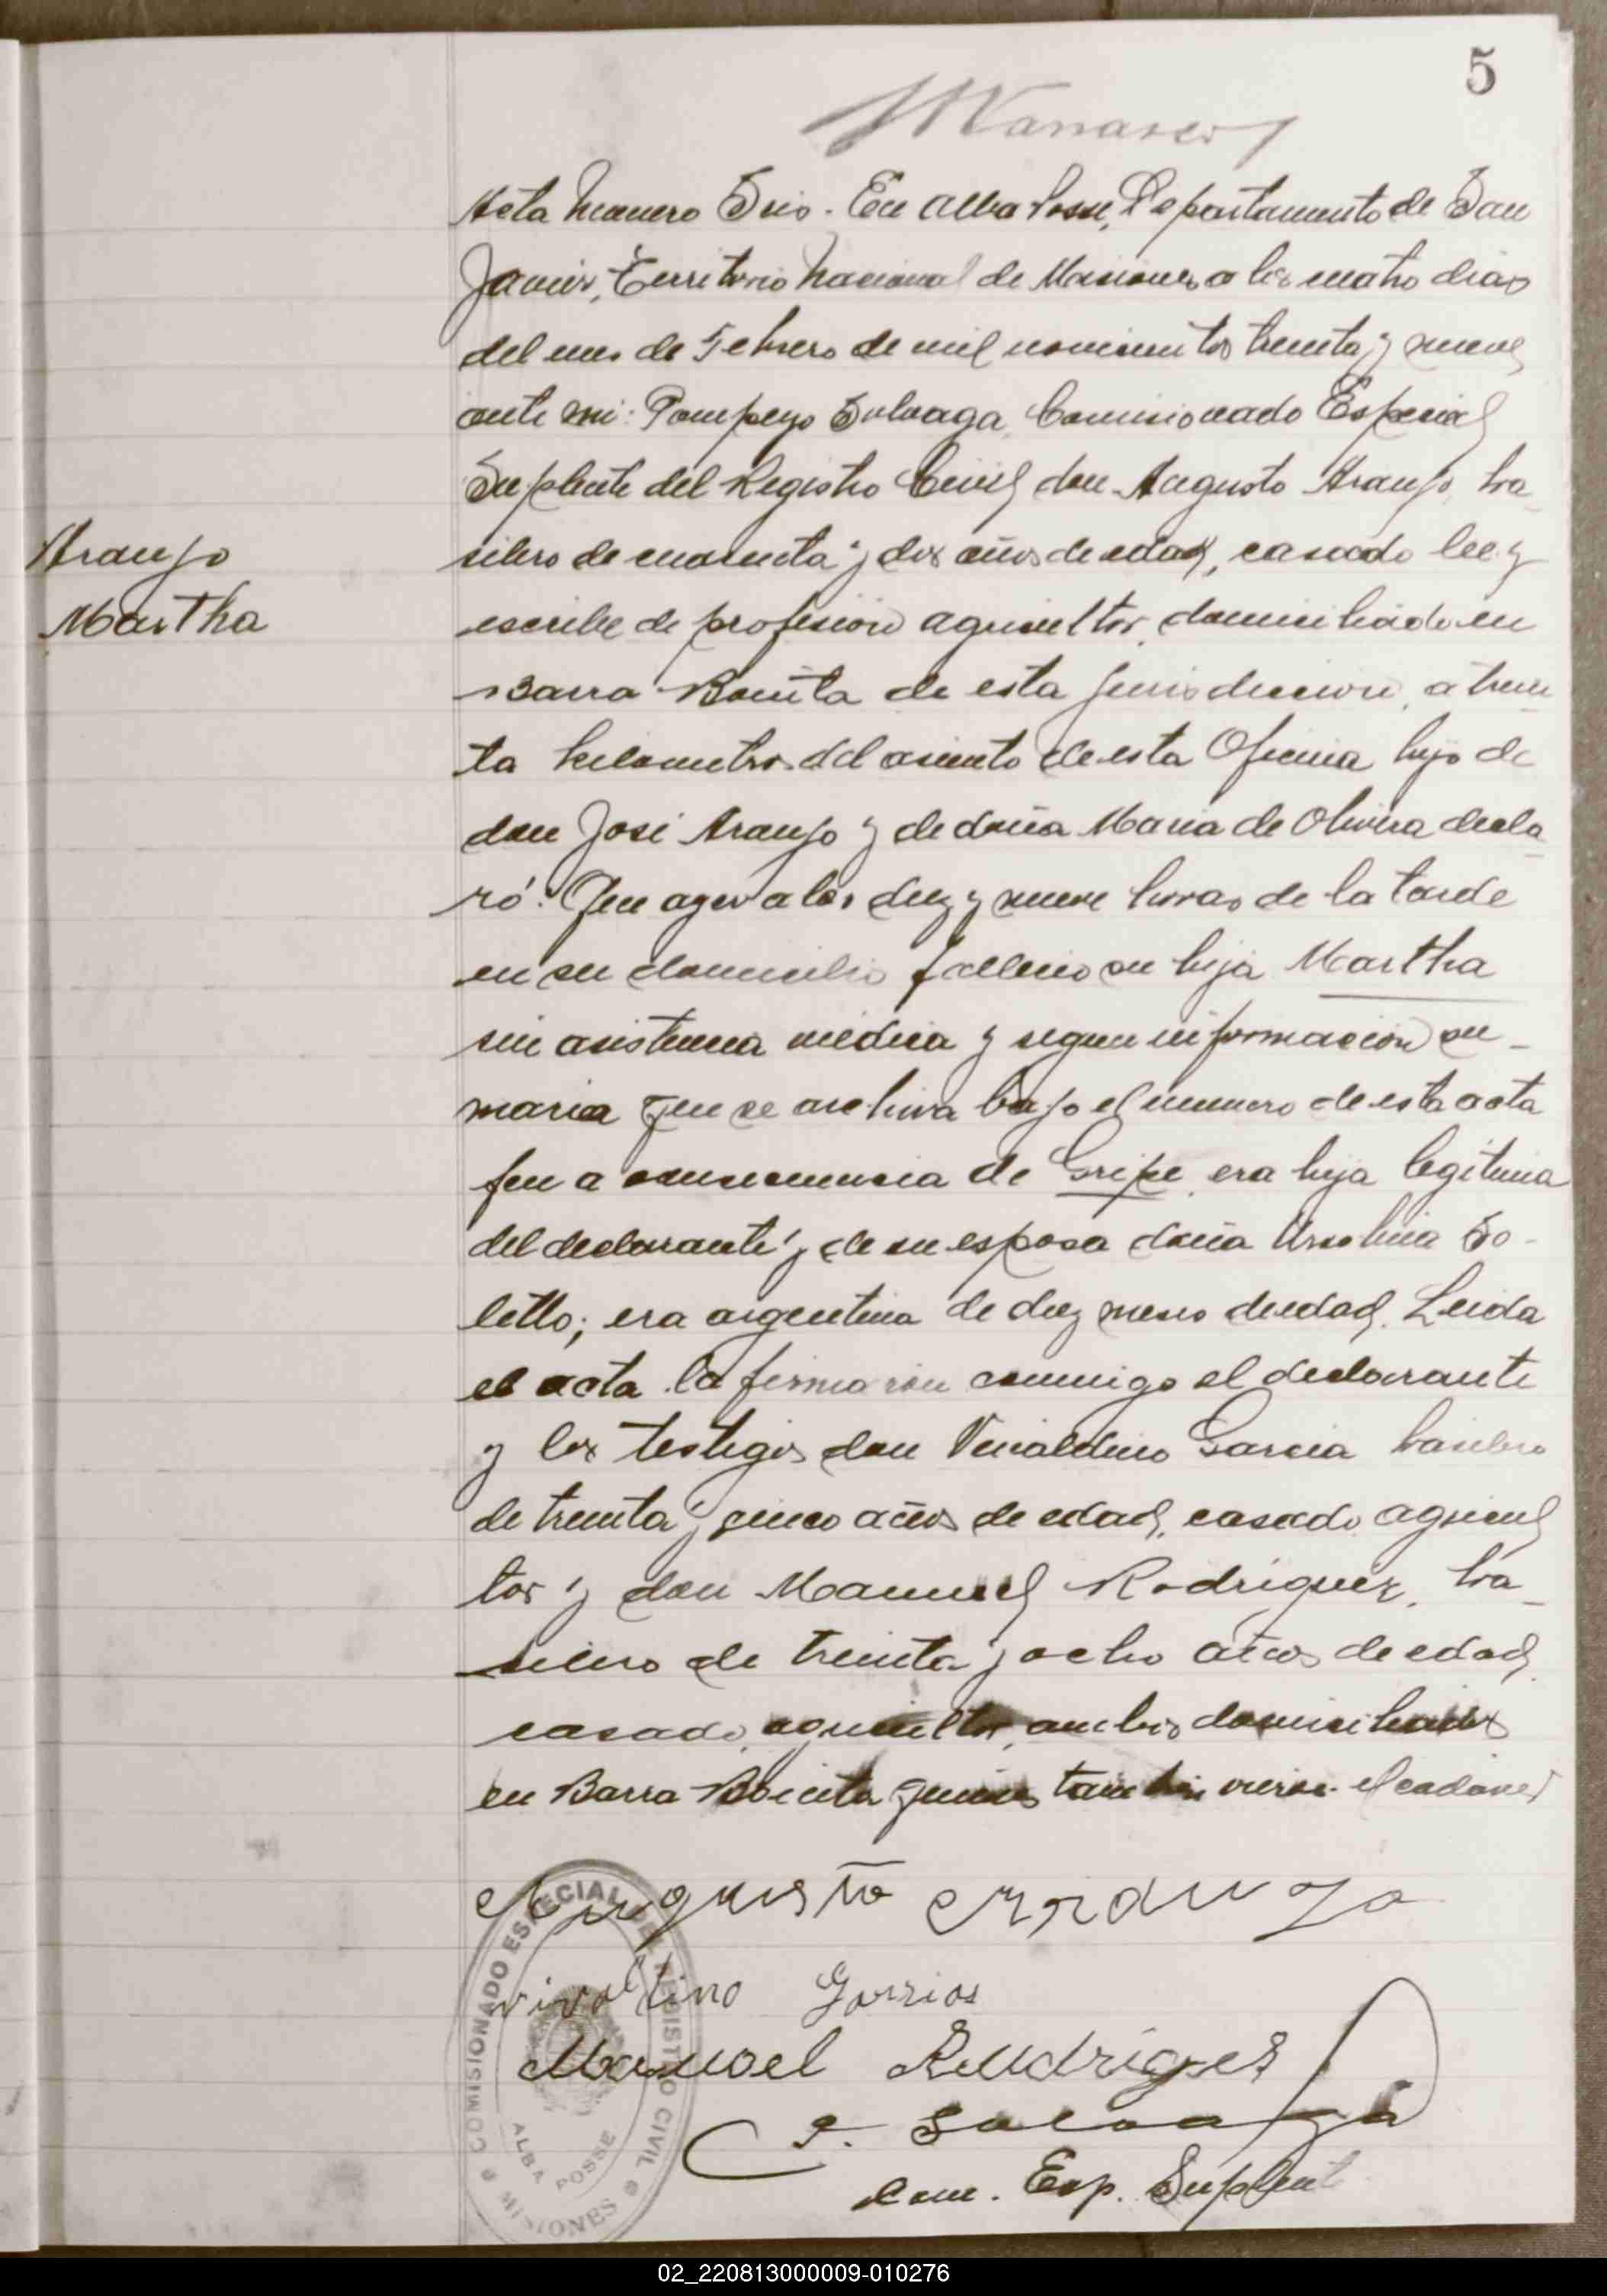 5
Acta Numero Seis. En Alba Posse, Departamento de San
Javier, Territorio Nacional de Misiones a los cuatro dias
del mes de Febrero de mil novecientos treinta y nueve
ante mi: Pompeyo Solvaga, Comisionado Especial
Suplente del Registro Civil, don Augusto Araujo, bra-
silero de cuarenta y dos años de edad, casado lee y
Araujo
Martha
escribe de profesion agricultor, domiciliado en
Barra Bonita de esta jurisdiccion, a trein-
ta kilometros del asiento de esta Oficina hijo de
don José Araujo y de doña Maria de Olivera decla-
ró: Que ayer a las diez y nueve horas de la tarde
en su domicilio fallecio su hija Martha
sin asistencia médica y segun informacion su-
maria que se archiva bajo el numero de esta acta
fue a consecuencia de Gripe, era hija legitima
del declarante y de su esposa doña Ursolina So-
letto; era argentina de diez meses de edad. Leida
el acta la firmaron conmigo el declarante
y los testigos don Vivaldino Garcia brasilero
de treinta y cinco años de edad, casado, agricul
tor y don Manuel Rodriguez, bra-
silero de treinta y ocho años de edad,
casado, agricultor, ambos domiciliados
en Barra Bonita quienes tambien vieron el cadaver
Augusto Arauzo
vivaltino Garrios
Manoel Rudriges
P. Solvaga
Com. Esp. Suplente
COMISIONADO ESPECIAL DEL REGISTRO CIVIL
ALBA POSSE
MISIONES
02_220813000009-010276